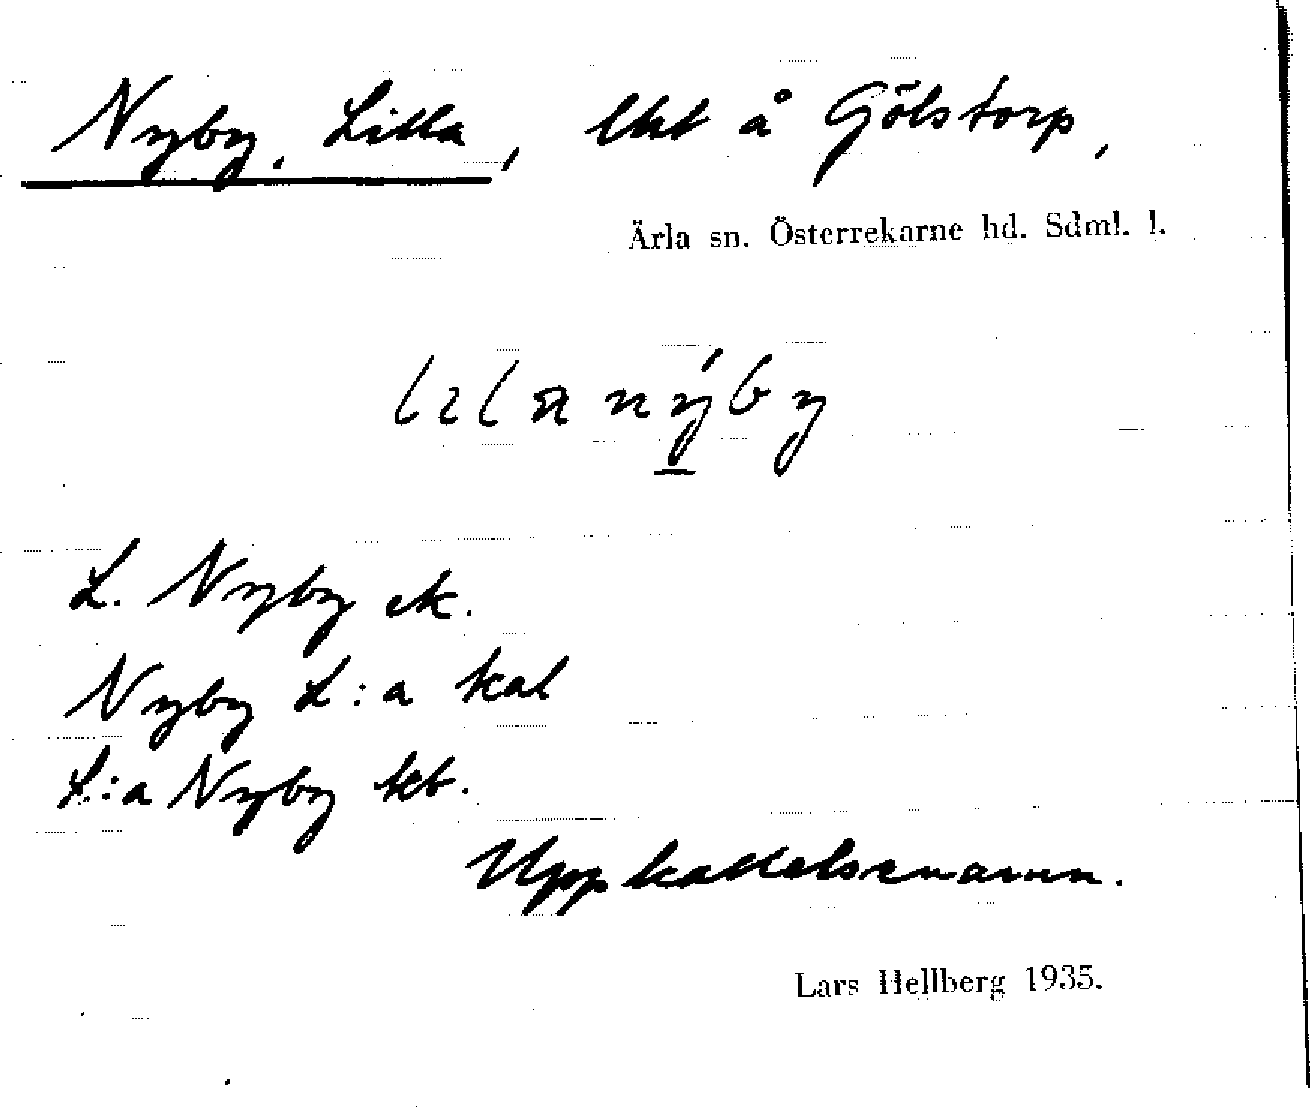 Nyby, Lilla, lht å Gölstorp,
Ärla sn. Österrekarne hd. Sdml. l.
L. Nyby ek.
Nyby L:a kal
L:a Nyby kb.
Uppkallelsenamn.
Lars Hellberg 1935.